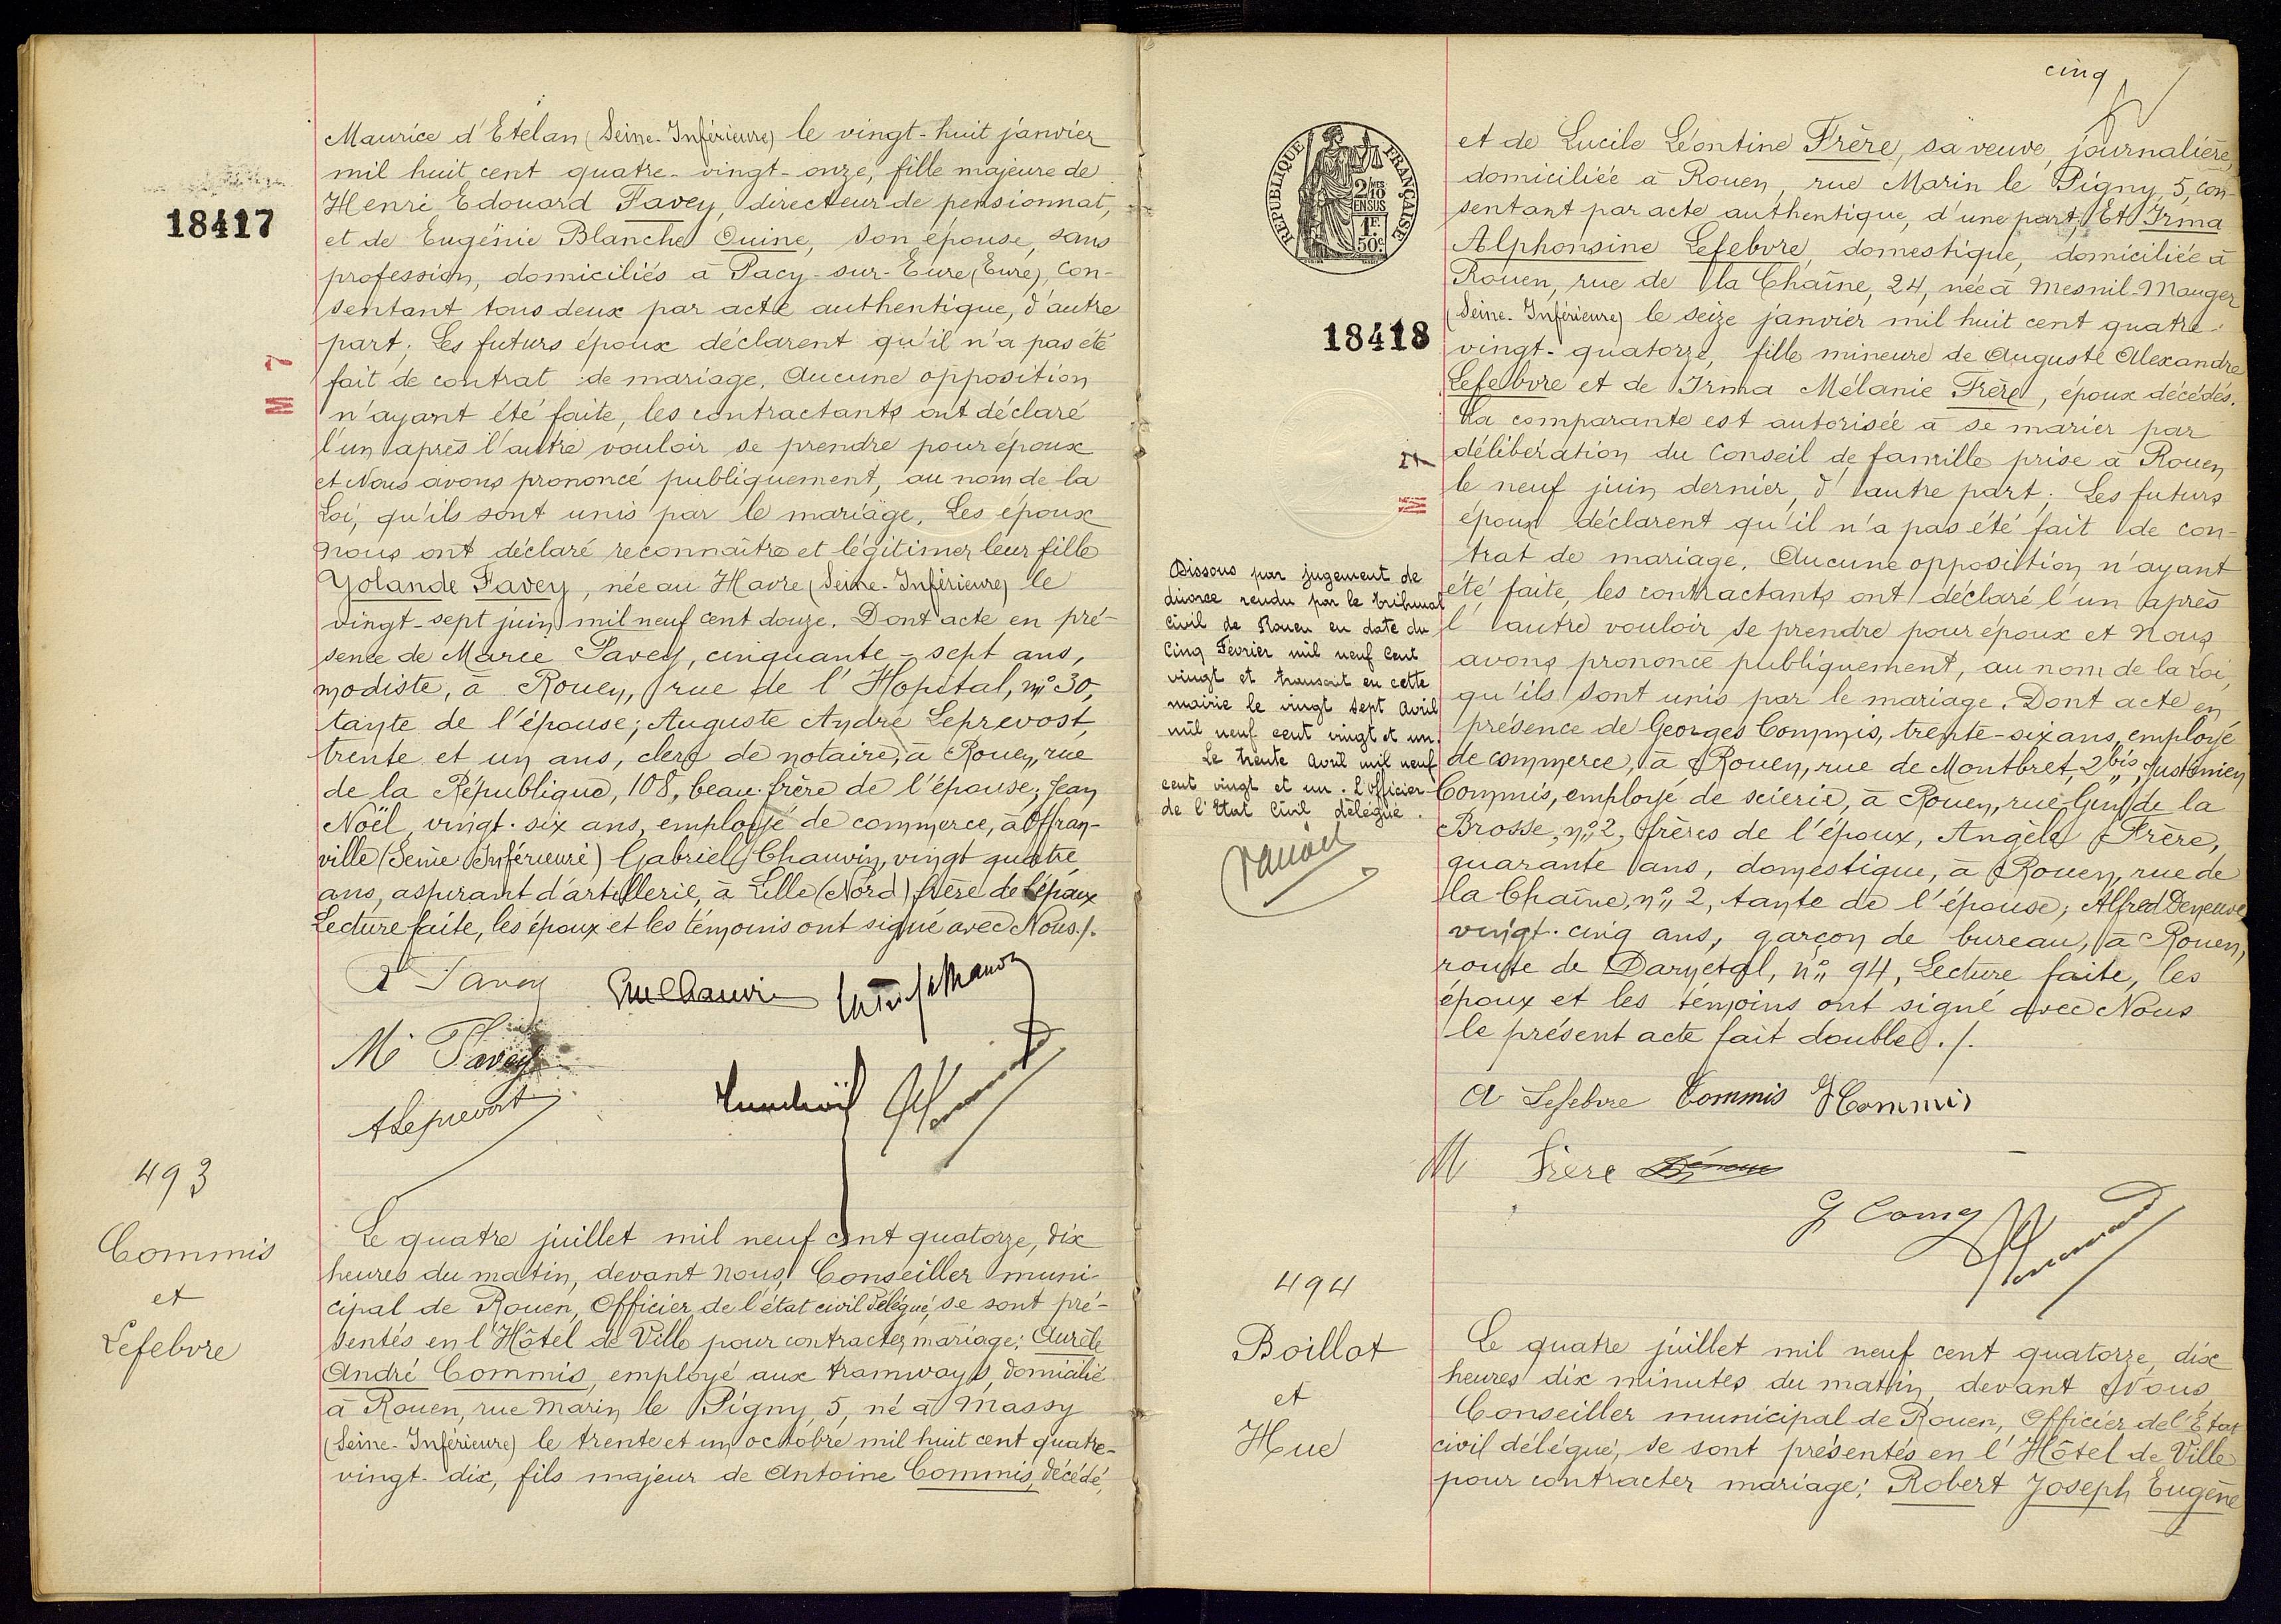 18417
M 7
Maurice d'Etelan (Seine-Inférieure) le vingt-huit janvier
mil huit cent quatre-vingt-onze, fille majeure de
Henri Edouard Favey, directeur de pensionnat,
et de Eugénie Blanche Ouine, son épouse, sans
profession, domiciliés à Pacy-sur-Eure (Eure), con-
sentant tous deux par acte authentique, d'autre
part; Les futurs époux déclarent qu'il n'a pas été
fait de contrat de mariage. Aucune opposition
n'ayant été faite, les contractants ont déclaré
l'un après l'autre vouloir se prendre pour époux
et Nous avons prononcé publiquement, au nom de la
Loi, qu'ils sont unis par le mariage. Les époux
Nous ont déclaré reconnaître et légitimer leur fille
Yolande Favey, née au Havre (Seine-Inférieure) le
vingt-sept juin mil neuf cent douze. Dont acte en pré-
sence de Marie Favey, cinquante-sept ans,
modiste, à Rouen, rue de l'Hopital, nº 30,
tante de l'épouse; Auguste André Leprevost,
trente et un ans, clerc de notaire, à Rouen, rue
de la République, 108, beau-frère de l'épouse; Jean
Noël, vingt-six ans, employé de commerce, à Offran-
ville (Seine Inférieure) Gabriel Chauvin, vingt quatre
ans, aspirant d'artillerie, à Lille (Nord) frère de l'époux
Lecture faite, les époux et les témoins ont signé avec Nous./.
Favey
M Favey
ALeprevost
493
Commis
et
Lefebvre
Le quatre juillet mil neuf cent quatorze, dix
heures du matin, devant Nous, Conseiller muni-
cipal de Rouen, Officier de l'état civil délégué, se sont pré-
sentés en l'Hôtel de Ville pour contracter mariage: Aurèle
André Commis, employé aux tramways, domicilié
à Rouen, rue Marin le Pigny, 5, né à Massy
(Seine-Inférieure) le trente et un octobre mil huit cent quatre-
vingt-dix, fils majeur de Antoine Commis, décédé,
cinq
RÉPUBLIQUE FRANÇAISE
2/10 EN SUS
1F. 50c
18418
M 7
et de Lucile Léontine Frère, sa veuve, journalière,
domiciliée à Rouen, rue Marin le Pigny 5, con-
sentant par acte authentique, d'une part; Et Irma
Alphonsine Lefebvre, domestique, domiciliée à
Rouen, rue de la Chaîne, 24, née à Mesnil-Mauger
(Seine-Inférieure) le seize janvier mil huit cent quatre-
vingt-quatorze, fille mineure de Auguste Alexandre
Lefebvre et de Irma Mélanie Frère, époux décédés.
La comparante est autorisée à se marier par
délibération du Conseil de famille prise à Rouen,
le neuf juin dernier, d'autre part; Les futurs
époux déclarent qu'il n'a pas été fait de con-
trat de mariage. Aucune opposition n'ayant
été faite, les contractants ont déclaré l'un après
l'autre vouloir se prendre pour époux et Nous
avons prononcé publiquement, au nom de la Loi,
qu'ils sont unis par le mariage. Dont acte en
présence de Georges Commis, trente-six ans, employé
de commerce, à Rouen, rue de Montbret, 2bis, Justinien
Commis, employé de scierie, à Rouen, rue Guy de la
Brosse, nº 2, frères de l'époux, Angèle Frère,
quarante ans, domestique, à Rouen, rue de
la Chaîne, nº 2, tante de l'épouse; Alfred Deneuve
vingt-cinq ans, garçon de bureau, à Rouen,
route de Darnetal, nº 94, Lecture faite, les
époux et les témoins ont signé avec Nous
le présent acte fait double./.
Dissous par jugement de
divorce rendu par le tribunal
Civil de Rouen en date du
Cinq Février mil neuf Cent
vingt et transcrit en cette
mairie le vingt sept Avril
mil neuf cent vingt et un.
Le trente Avril mil neuf
cent vingt et un. L'officier
de l'Etat Civil délégué.
A Lefebvre Commis JCommis
M Frère
494
Boillot
et
Hue
Le quatre juillet mil neuf cent quatorze, dix
heures dix minutes du matin, devant Nous
Conseiller municipal de Rouen, Officier de l'Etat
civil délégué, se sont présentés en l'Hôtel de Ville
pour contracter mariage: Robert Joseph Eugène